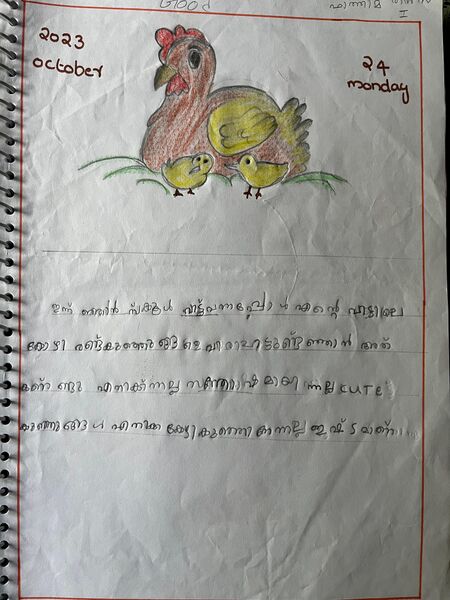 Good
ഫാത്തിമ
I
2023
october
24
monday
ഇന്ന് ഞാൻ സ്കൂൾ വിട്ട് വന്നപ്പോൾ എൻ്റെ വീട്ടിലെ
കോഴി രണ്ട് കുഞ്ഞുങ്ങളെ വിരിഞ്ഞിട്ടുണ്ട് ഞാൻ അത്
കണ്ടു എനിക്ക് നല്ല സന്തോഷമായി നല്ല CUTE
കുഞ്ഞുങ്ങൾ എനിക്ക കോഴികുഞ്ഞിനെ നല്ല ഇഷ്ടമാണ്